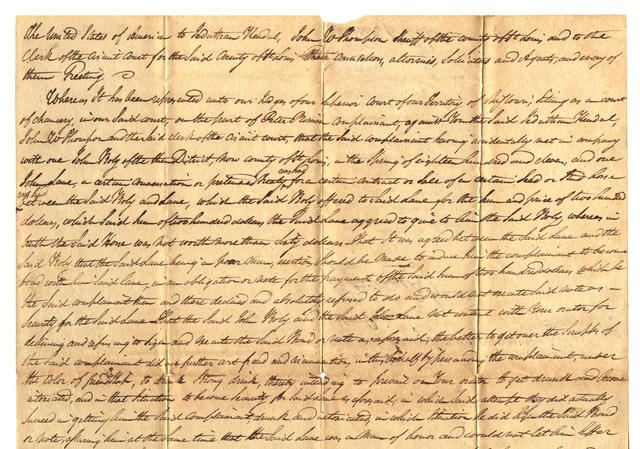 The United States of America to Jedathan Kendal, John W Thompson Sheriff of the county of St Louis and to the
Clerk of the Circuit Court for the Said County of St Louis Their Counsellors, attornies, Solicitors and Agents, and every of
them Greeting
Whereas It has been represented unto our Judges of our Superior Court of our Territory of Missouri, Sitting as a court
of chancery, in our Said court, on the part of Peter complainant, against You the Said Jedathan Kendal,
John W Thompson and the said clerk of the Circuit court, that the Said complainant having accidentally met in company
with one John Woly of the then District, Now county of St Louis, in the Spring of eighteen hundred and eleven, and one
John Lane, a certain conversation or pretended Treaty for a certain contract or Sale of a certain Steed or Stud horse
between the Said Woly and Lane, which the Said Woly offered to Said Lane for the Sum and price of two hundred
dollars, which Said Sum of two hundred dollars the Said Lane agreed to give to him the said Woly, whereas in
truth the Said Horse was not worth more than Sixty dollars. That It was agreed between the Said Lane and the
Said Woly that the Said Lane being a poor man, should be made to induce him the complainant to become
bond with him Said Lane, in an obligation or note for the payment of the Said Sum of two hundred dollars which he
the Said complainant then and there declined and absolutely refused to do and would not execute Said note as
Security for the Said Lane. That the Said John Woly and the Said Lane not content with Your orator for
declining and refusing to Sign and execute the Said Bond or note as aforesaid, the better to get over the Scruples of
the Said complainant did by a further art fraud and circumvention, by persuasion, the complainant, under
the color of friendship, to drink Strong drink, thereby intending to prevail on Your orator to get drunk and become
intoxicated, and in that Situation to become Security for Said Lane as aforesaid, in which Said attempt they did actually
Succeed in getting him the Said Complainant, drunk and intoxicated, in which Situation he did sign the Said Bond
or note, assuring him at the Same time that the Said Lane was a Man of honor and would not let him Suffer